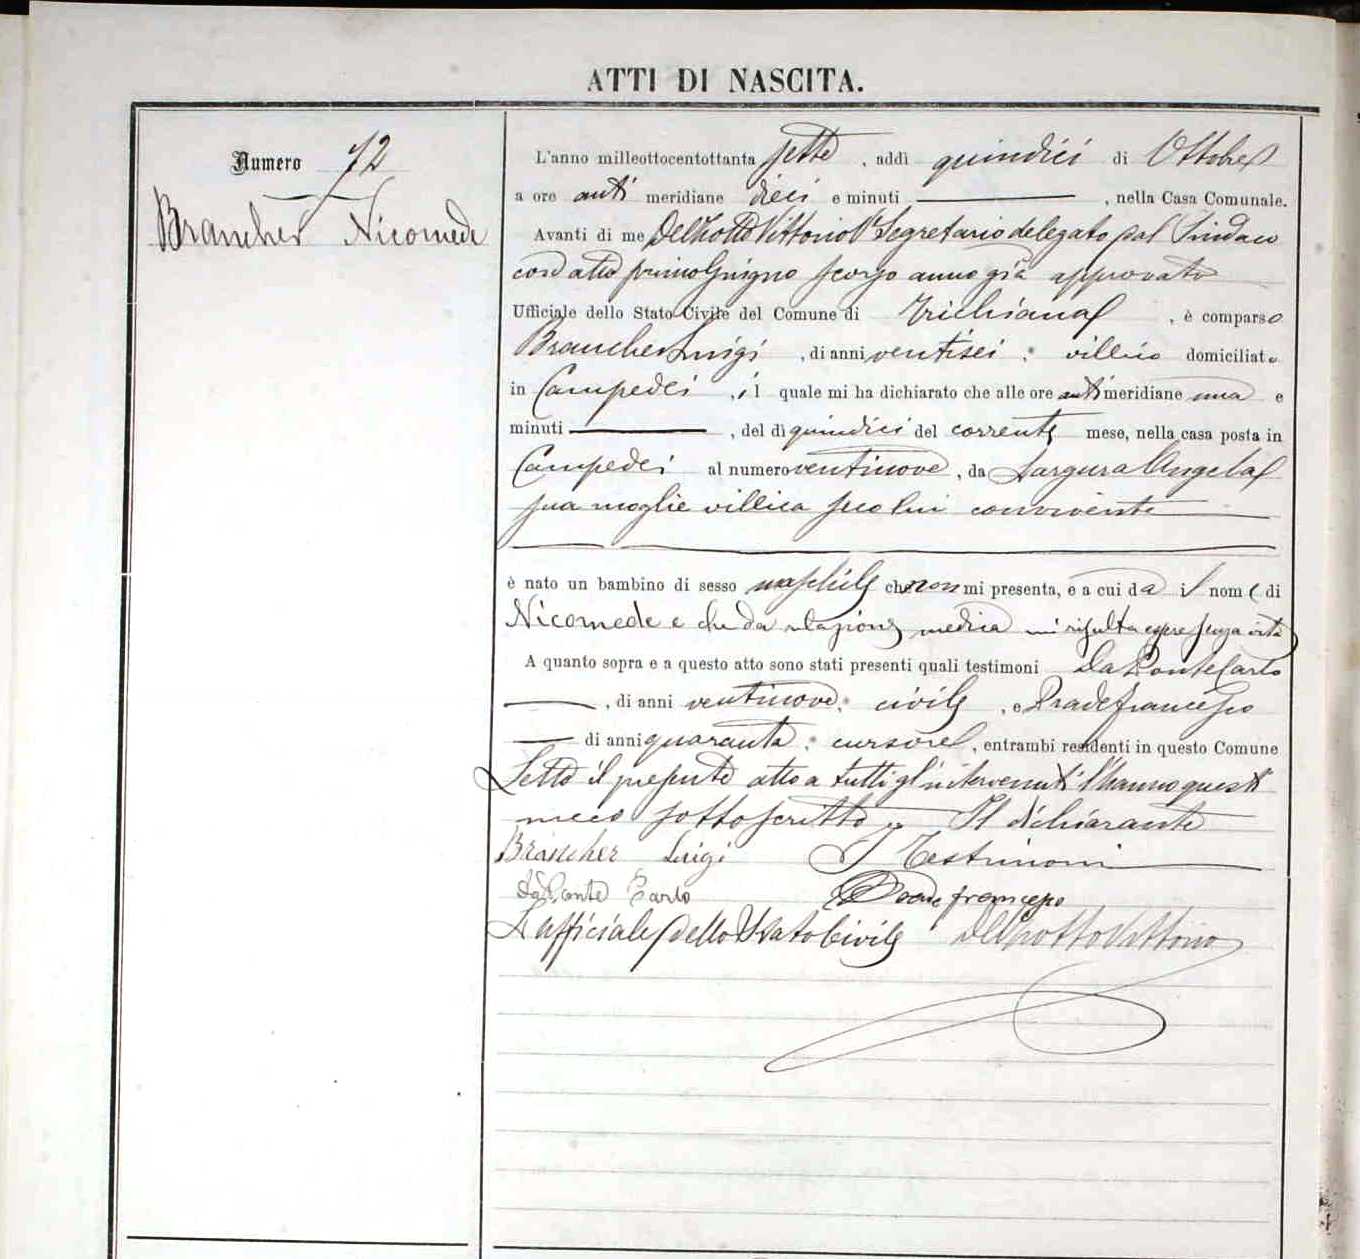 ATTI DI NASCITA.
Numero 72
Brancher Nicomede
L'anno milleottocentottanta sette, addì quindici di Ottobre
a ore anti meridiane dieci e minuti ———, nella Casa Comunale.
Avanti di me Dell'Lotto Vittorio Segretario delegato dal Sindaco
con atto primo Giugno scorso anno già approvato
Ufficiale dello Stato Civile del Comune di Trichiana, è comparso
Brancher Luigi, di anni ventisei, villico domiciliato
in Campedei, il quale mi ha dichiarato che alle ore anti meridiane una e
minuti ———, del dì quindici del corrente mese, nella casa posta in
Campedei al numero ventinove, da Angela
sua moglie villica seco lui convivente
è nato un bambino di sesso maschile che non mi presenta, e a cui da il nome di
Nicomede e che da relazione medica mi risulta essere senza vita
A quanto sopra e a questo atto sono stati presenti quali testimoni Da Ponte Carlo
———, di anni ventinove, civile, e Prade Francesco
—— di anni quaranta, cursore, entrambi residenti in questo Comune
Letto il presente atto a tutti gl'intervenuti l'hanno questi
meco sottoscritto Il dichiarante
Brancher Luigi I Testimoni
Da Ponte Carlo Prade Francesco
L'ufficiale dello Stato Civile Vittorio